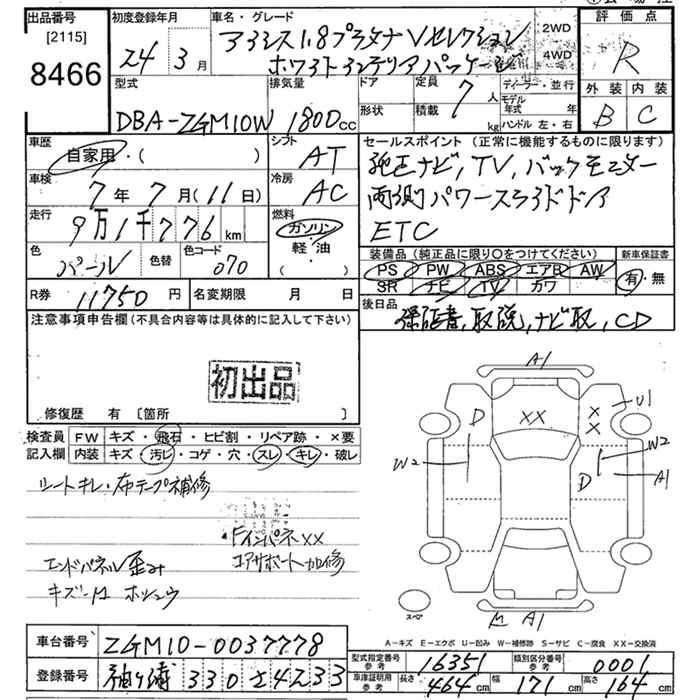 出品番号
[2115]
8466
初度登録年月
24年 3月
車名・グレード
アイシス1.8プラタナVセレクション
ホワイトインテリアパッケージ
2WD
4WD
評価点
R
外装 内装
B C
型式
DBA-ZGM10W
排気量
1800cc
ドア
形状
定員
7人
積載 kg
ディーラー・並行
モデル年式 年
ハンドル 左・右
車歴
自家用・( )
シフト
AT
車検
7年 7月 (11日)
冷房
AC
走行
9万1千776km
燃料
ガソリン
軽・油
( )
色
パール
色替
色コード
070
R券 11750円
名変期限 月 日
セールスポイント(正常に機能するものに限ります)
純正ナビ, TV, バックモニター
両側パワースライドドア
ETC
装備品(純正品に限り〇をつけてください)
新車保証書
PS PW ABS エアB AW
SR ナビ TV カワ
有・無
後日品
保証書, 取説, ナビ取, CD
注意事項申告欄(不具合内容等は具体的に記入して下さい)
初出品
修復歴 有 [箇所 ]
検査員
記入欄
FW キズ・飛石・ヒビ割・リペア跡・×要
内装 キズ・汚レ・コゲ・穴・スレ・キレ・破レ
シートキレ・布テープ補修
Fインパネ××
コアサポート加修
エンドパネル歪み
A1
U1
D
XX
X
X
W2
W2
D
A1
A1
スペア
A-キズ E-エクボ U-凹み W-補修跡 S-サビ C-腐食 XX-交換済
車台番号 ZGM10-0037778
登録番号 袖ヶ浦 330 さ4233
型式指定番号
参考
16351
類別区分番号
参考
0001
車庫証明用
参考
長さ 464cm 幅 171cm 高さ 164cm